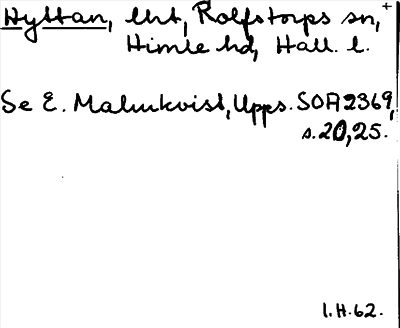 Hyttan, lht, Rolfstorps sn, +
Himle hd, Hall. l.
Se E. Malmkvist, Upps. SOA 2369,
s. 20, 25.
I.H. 62.